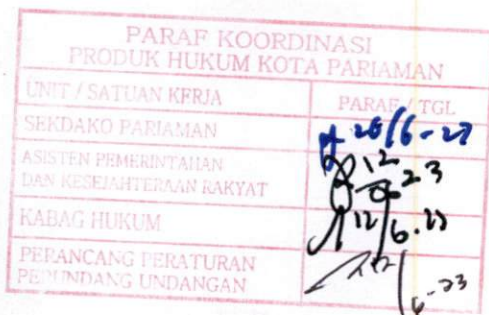 PARAF KOORDINASI
PRODUK HUKUM KOTA PARIAMAN
UNIT / SATUAN KERJA PARAF / TGL
SEKDAKO PARIAMAN 20/6-23
ASISTEN PEMERINTAHAN
DAN KESEJAHTERAAN RAKYAT 12/6 23
KABAG HUKUM 12/6.23
PERANCANG PERATURAN
PERUNDANG UNDANGAN /6-23